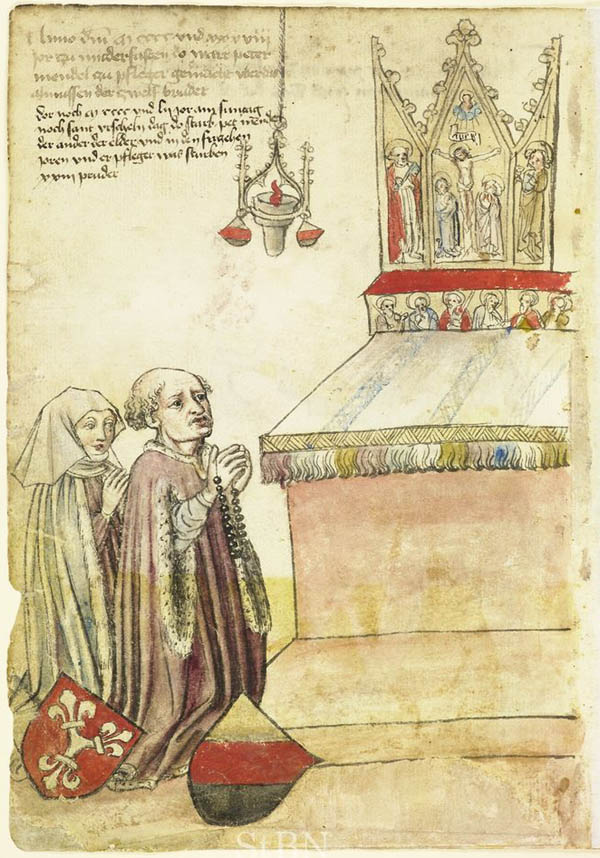 Anno d\overline{m} M cccc und xxxviii
jor zu mitterfasten do wart peter
mendel zu pfleger gemacht uber die
almussen der zwelf bruder
Dor noch M cccc und lij jor am suntag
noch sant urscheln dag do starb pet mendel
der ander der elder und in den
joren und er pfleger was sturben
xxiii pruder
INRI
StBN